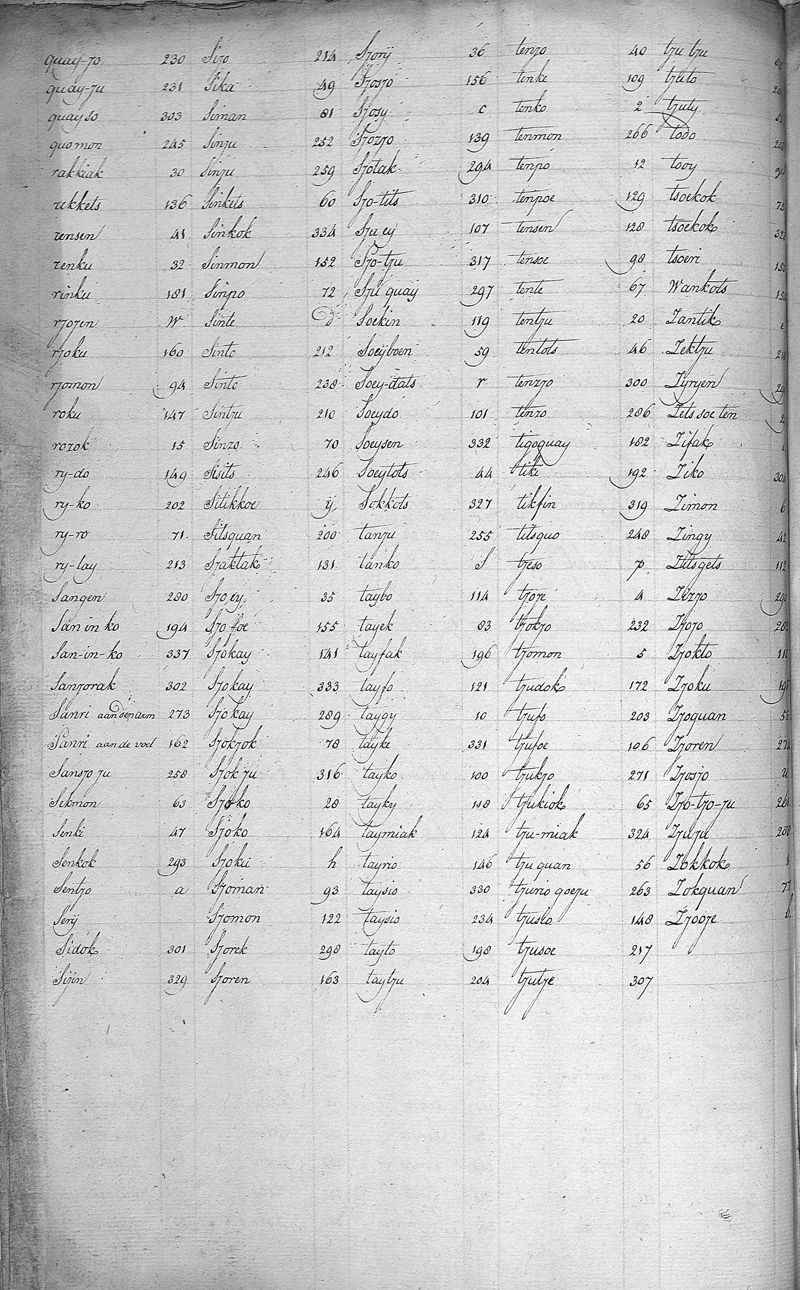 quay-zo 230 Sizo 214 Szorij 36 tenzo 40 tzu tzu
quay-zu 231 Sika 49 Szoszo 156 tenke 109 tzuto
quayso 303 Siman 81 Szosy c tenko 2 tzuty
quomon 245 Sinzu 252 Szozzo 139 tenmon 266 todo
rakkiak 30 Sinzu 259 Szotak 294 tenpo 12 tooy
rekkets 136 Sinkets 60 Szo-tits 310 tenpoe 129 tsoekok 73
rensen 41 Sinkok 334 Szu ey 107 tensen 128 tsoekok
renku 32 Sinmon 152 Szo-tzu 317 tensoe 98 tsoeri
rinku 181 Sinpo 72 Szu quay 297 tente 67 Wankots
rzozen W Sinte D Soekin 119 tentzu 20 Zantik
rzoku 160 Sinto 212 Soeijboen 59 tentots 46 Zektzu
rzomon 94 Sinto 238 Soey-dats r tenzzo 300 Zyryen
roku 147 Sintzu 210 Soeydo 101 tenzo 286 Zets soe ten
rozok 15 Sinzo 70 Soeysen 332 tigoquay 182 Zifak
ry-do 149 Sisits 246 Soeytots 44 tiki 192 Ziko
ry-ko 202 Sitikkoe ij Sokkots 327 tikfin 319 Zimon 6
ry-ro 71 Sitsquan 200 tanzu 255 titsquo 248 Zingy 42
ry-tay 213 Szaktak 131 tanko S tzeso p Zitsgets 112
Sangen 280 Szo ey 35 taybo 114 tzoze 4 Zizzo
San in ko 194 Szo-foe 155 tayek 83 tzokzo 232 Zzozo
San-in-ko 337 Szokay 141 tayfak 196 tzomon 5 Zzokto
Sanzorak 302 Szokay 333 tayfo 121 tzudok 172 Zzoku
Sanri aan den arm 273 Szokay 289 taygy 10 tzufo 203 Zzoquan
Sanri aan de voet 162 Szokzok 78 tayke 331 tzufoe 106 Zzoren
Sanszo zu 258 Szok zu 316 tayko 100 tzukzo 271 Zzoszo
Sekmon 63 Szoko 28 tayky 118 tzukiok 65 Zzo-tzo-zu
Senki 47 Szoko 164 taymiak 124 tzu-miak 324 Zzuzu
Senkok 293 Szoku h tayrio 146 tzu quan 56 Zokkok
Sentzo a Szoman 93 taysio 330 tzurio goezu 263 Zokquan 77
Serij Szomon 122 taysio 234 tzuseo 148 Zzooze b
Sidok 301 Szorek 298 tayto 198 tzusoe 217
Sijin 329 Szoren 163 taytzu 204 tzutze 307